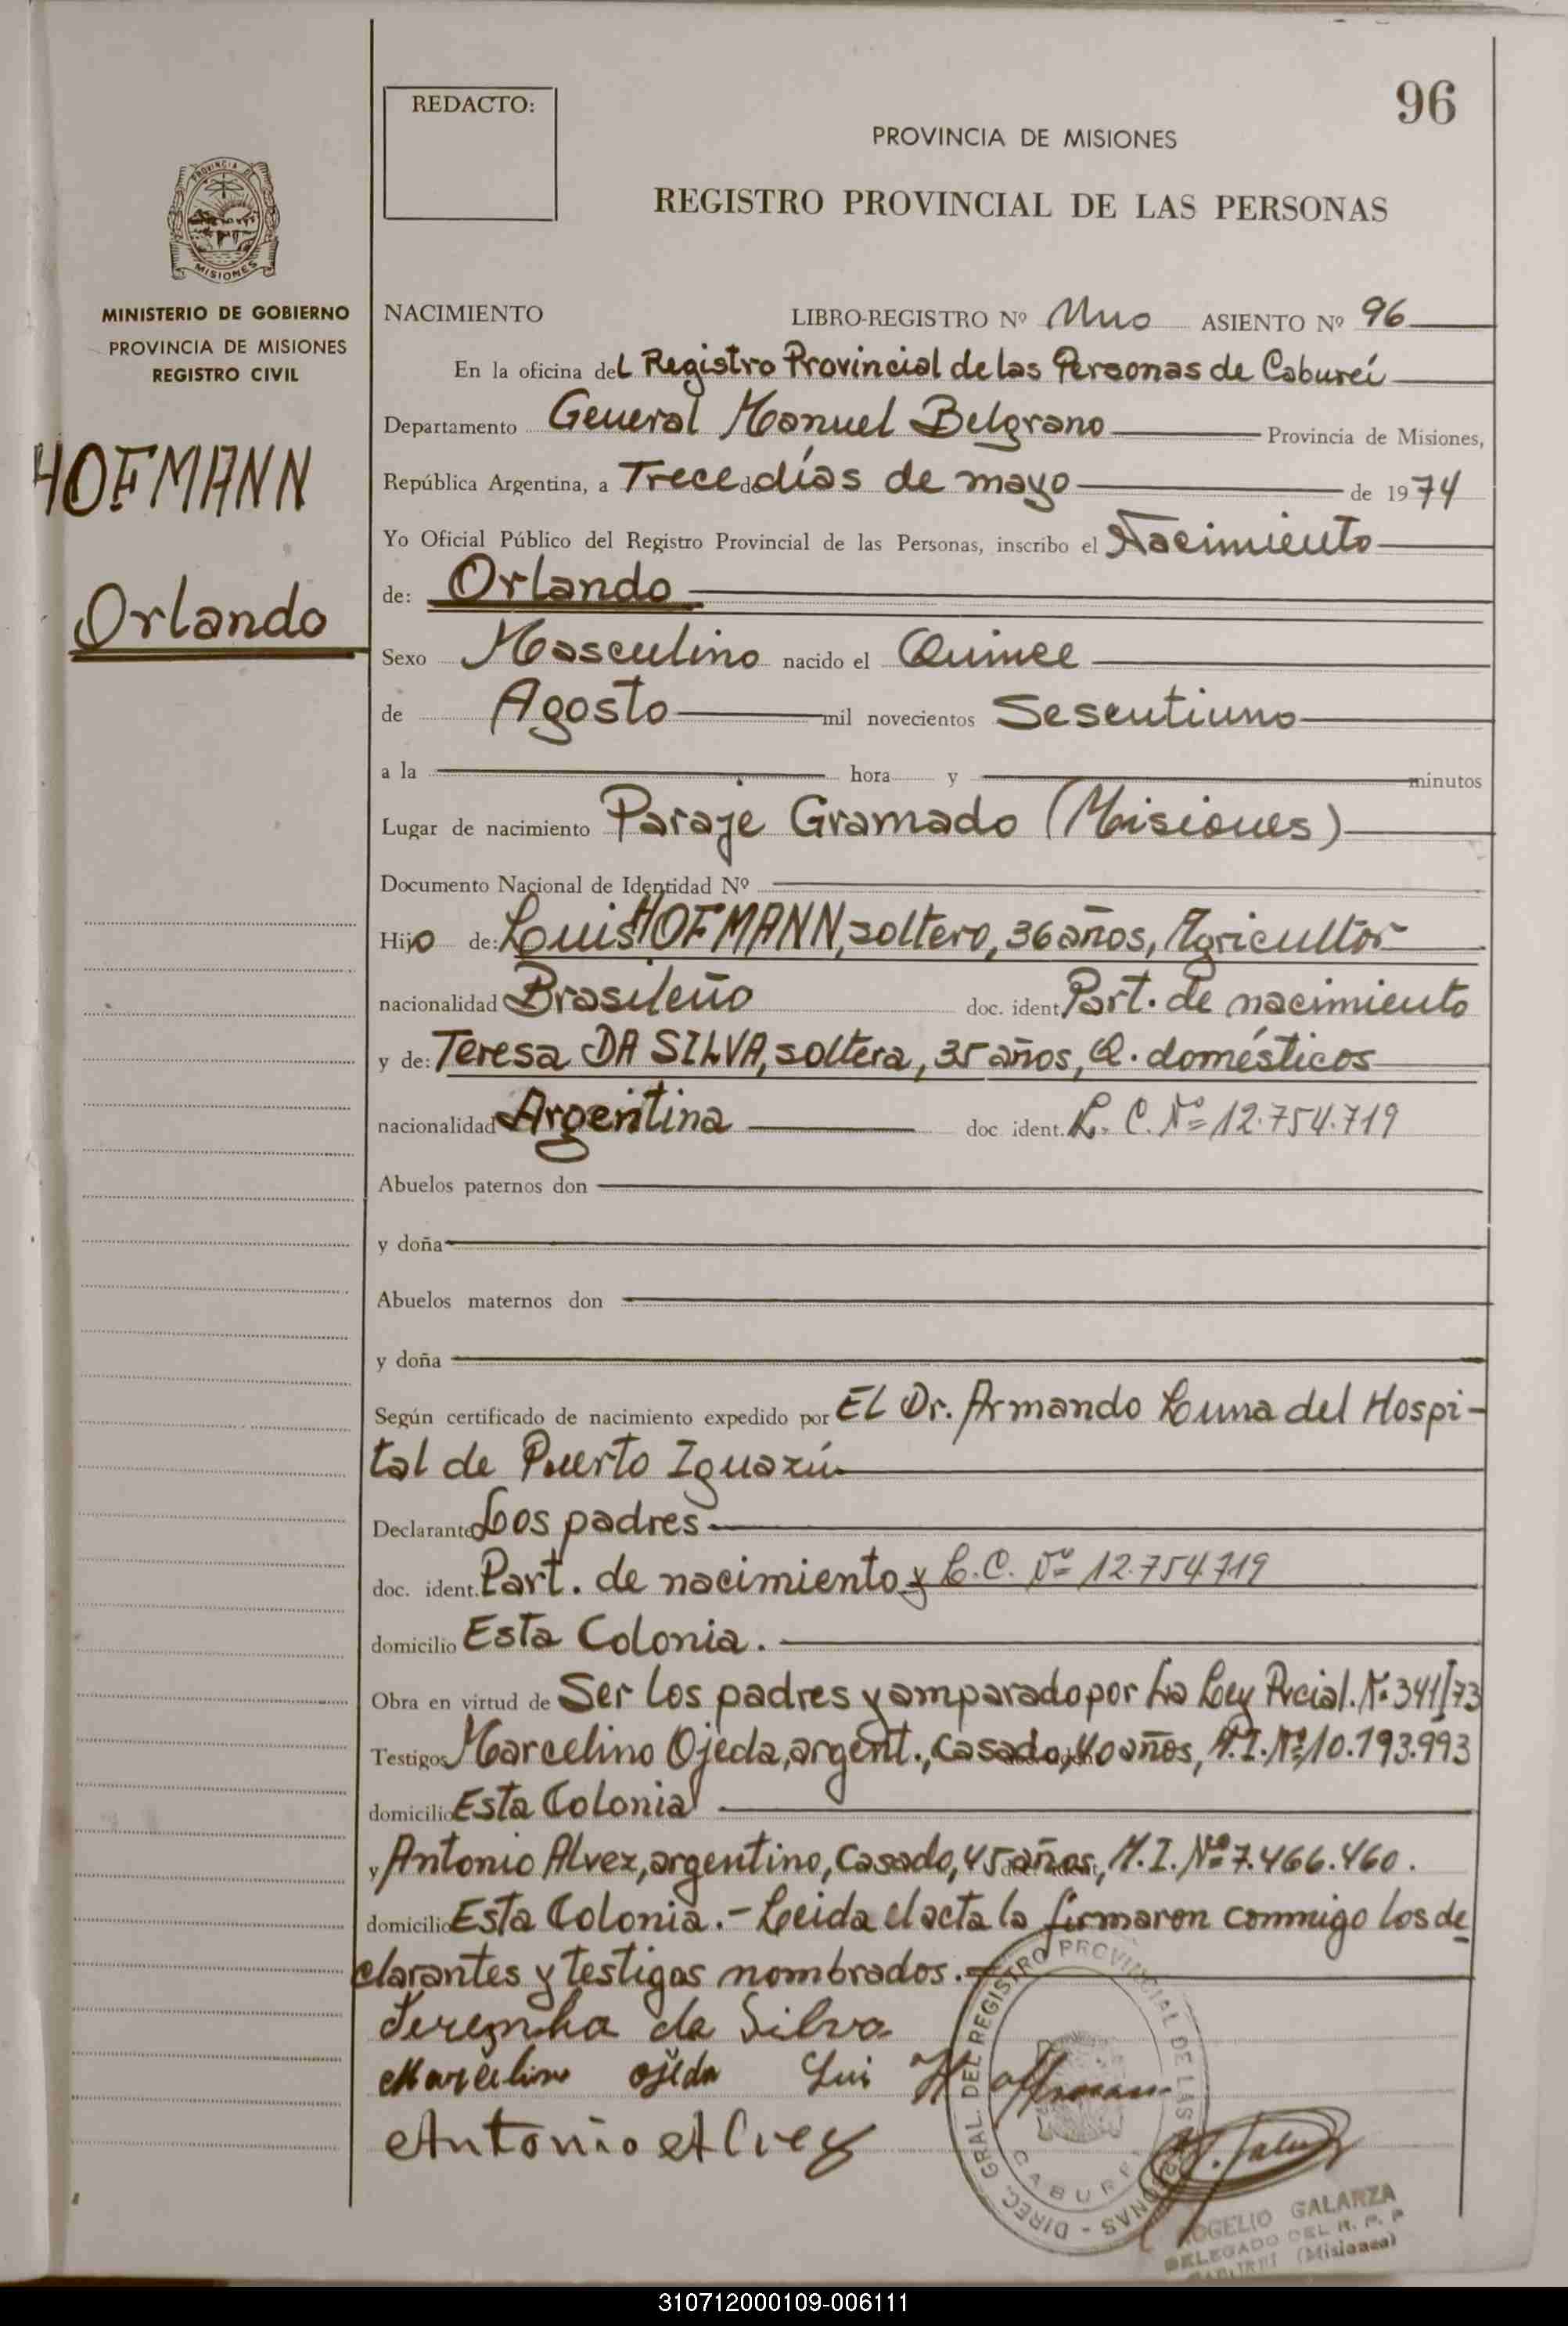 96
REDACTO:
PROVINCIA DE MISIONES
REGISTRO PROVINCIAL DE LAS PERSONAS
PROVINCIA DE
MISIONES
MINISTERIO DE GOBIERNO
PROVINCIA DE MISIONES
REGISTRO CIVIL
HOFMANN
Orlando
NACIMIENTO LIBRO-REGISTRO Nº Uno ASIENTO Nº 96
En la oficina del Registro Provincial de las Personas de Caburei
Departamento General Manuel Belgrano Provincia de Misiones,
República Argentina, a Trece días de mayo de 1974
Yo Oficial Público del Registro Provincial de las Personas, inscribo el Nacimiento
de: Orlando
Sexo Masculino nacido el Quince
de Agosto mil novecientos Sesentiuno
a la hora y minutos
Lugar de nacimiento Paraje Gramado (Misiones)
Documento Nacional de Identidad Nº
Hijo de: Luis HOFMANN, soltero, 36 años, Agricultor
nacionalidad Brasileño doc. ident. Part. de nacimiento
y de: Teresa DA SILVA, soltera, 35 años, Q. domésticos
nacionalidad Argentina doc ident. L. C. Nº 12.754.719
Abuelos paternos don
y doña
Abuelos maternos don
y doña
Según certificado de nacimiento expedido por EL Dr. Armando Luna del Hospi-
tal de Puerto Iguazú
Declarante Los padres
doc. ident. Part. de nacimiento y L.C. Nº 12.754.719
domicilio Esta Colonia.
Obra en virtud de Ser los padres y amparado por La Ley Pcial. Nº 341/73
Testigos Marcelino Ojeda, argent., casado, 40 años, M.I. Nº 10.193.993
domicilio Esta Colonia
y Antonio Alvez, argentino, casado, 45 años, M.I. Nº 7.466.460.
domicilio Esta Colonia.- Leida el acta la firmaron conmigo los de
clarantes y testigos nombrados.
Teresinha da Silva
Marcelino ojeda Lui Hoffmann
Antonio Alvez
DIREC. GRAL. DEL REGISTRO PROVINCIAL DE LAS PERSONAS -
CABUREI
ROGELIO GALARZA
DELEGADO DEL R. P. P
(Misiones)
310712000109-006111